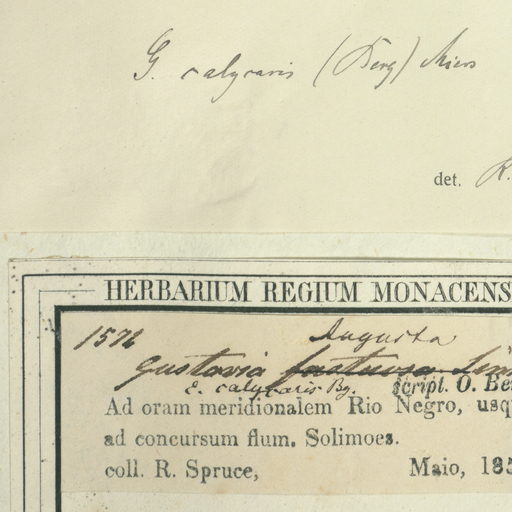 G. calycaris (Berg) Miers
det. R.
HERBARIUM REGIUM MONACENS
1576 Augusta
Gustavia fastuosa Linn
E. calycaris Bg. script. O. Be
Ad oram meridionalem Rio Negro, usq
ad concursum flum. Solimoes.
coll. R. Spruce, Maio, 185